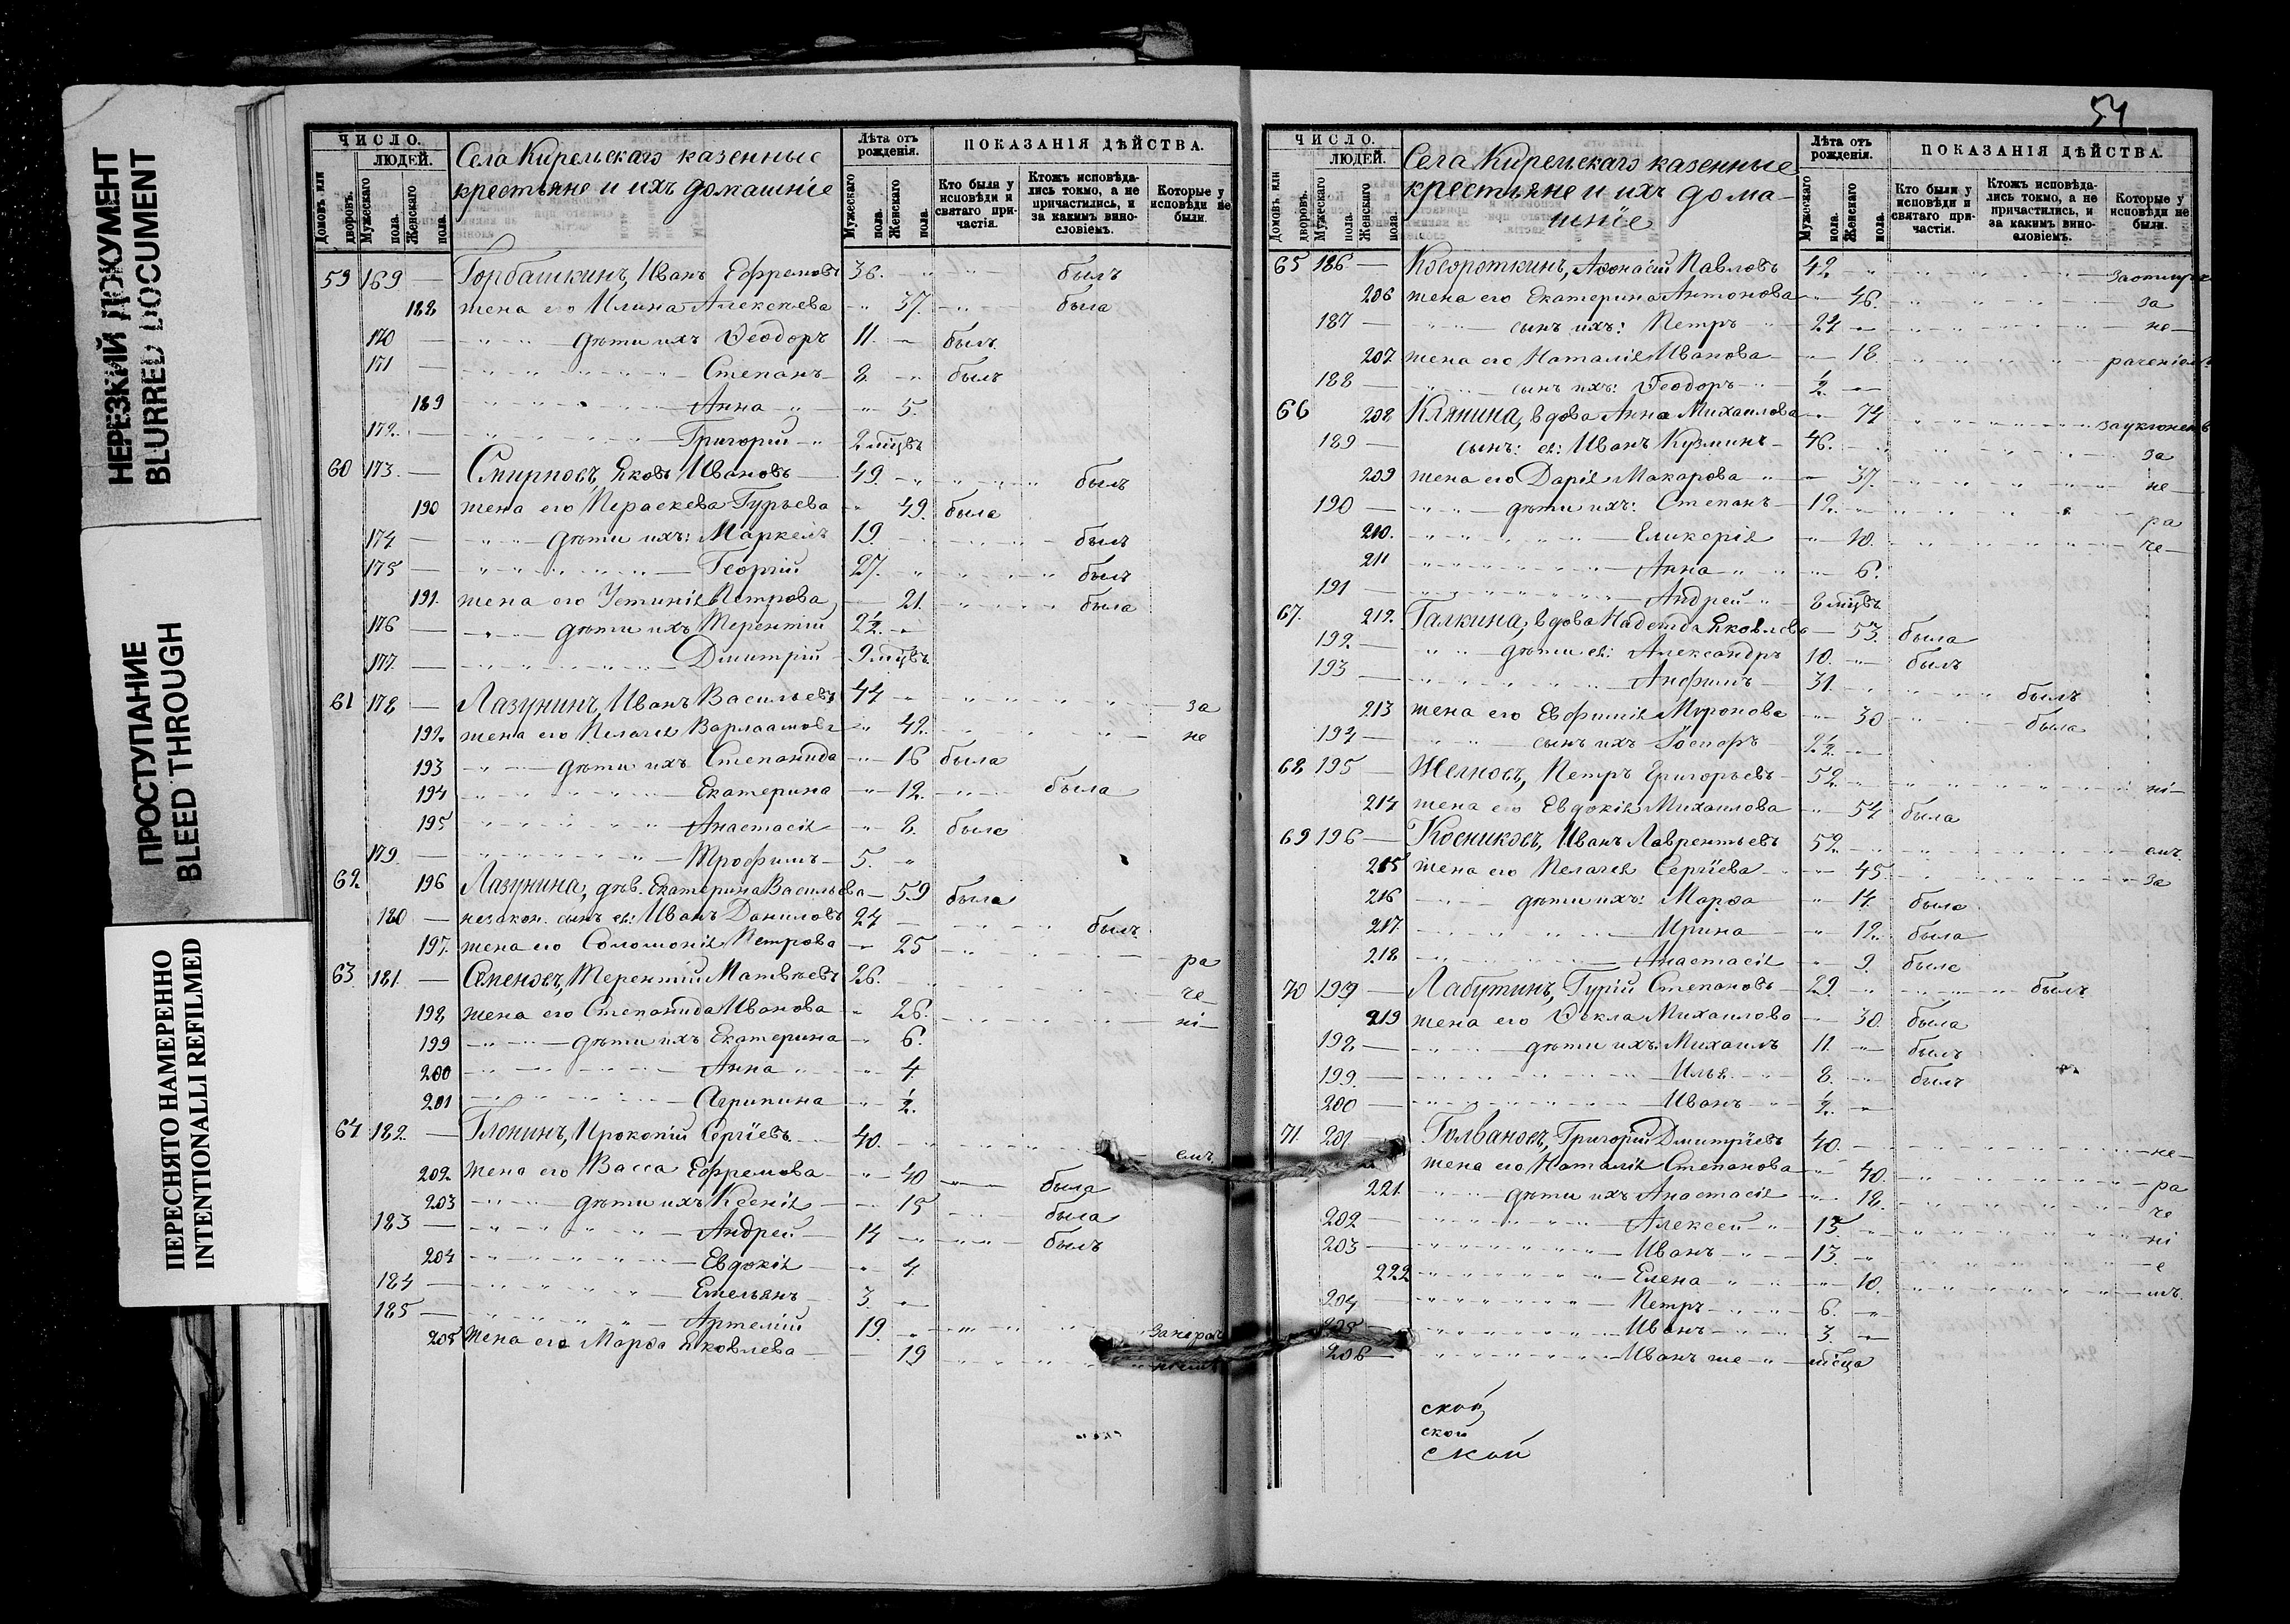 НЕРЕЗКИЙ ДОКУМЕНТ
BLURRED DOCUMENT
ПРОСТУПАНИЕ
BLEED THROUGH
ПЕРЕСНЯТО НАМЕРЕННО
INTENTIONALLI REFILMED
ЧИСЛО.
ЛЮДЕЙ.
Домовъ или дворовъ.
Мужескаго пола.
Женскаго пола.
Села Кирельскаго казенные
крестьяне и ихъ домашнiе
Лѣта отъ рожденія.
Мужескаго пола.
Женскаго пола.
ПОКАЗАНІЯ ДѢЙСТВА.
Кто были у исповѣди и святаго причастія.
Ктожъ исповѣдались токмо, а не причастились, и за какимъ винословіемъ.
Которые у исповѣди не были.
59 169 — Горбашкинъ, Иванъ Ефремовъ 36. былъ
188 жена его Алексѣева 37. была
170 — дѣти ихъ Ѳеодоръ 11. былъ
171 — Степанъ 8. былъ
189 Анна 5.
172. — Григорій 2 мцѣвъ
60 173. — Смирновъ, Яковъ Ивановъ 49. былъ
190 жена его Параскева Гурьева 49. была
174 — дѣти ихъ: Маркелъ 19. былъ
175 — Георгій 27. былъ
191. жена его Устинія Петрова 21. была
176 — дѣти ихъ Терентій 2½
177. — Дмитрій 9 мцѣвъ
61 178 — Лазунинъ, Иванъ Васильевъ 44 за
192. жена его Пелагея Варлаамова 42. не
193 дѣти ихъ Степанида 16 была
194 Екатерина 12. была
195 Анастасія 8. была
179. — Трофимъ 5.
62. 196 Лазунина, дѣв. Екатерина Васильева 59 была
180 — незакон. сынъ ея: Иванъ Даниловъ 24 былъ
197. жена его Соломонія Петрова 25 ра
63 181. — Семеновъ, Терентій Матвѣевъ 26. че
198 жена его Степанида Иванова 26. ні
199 дѣти ихъ Екатерина 6.
200 Анна 4
201 Агрипина ½
64 182. — Глонинъ, Прокопій Сергіевъ 40. емъ
202. жена его Васса Ефремова 40 была
203 дѣти ихъ Ксенія 15 была
183 — Андрей 14 былъ
204 Евдокія 4
184 — Емельянъ 3.
185 — Артемій 19.
205 жена его Марѳа Яковлева 19
54
ЧИСЛО.
ЛЮДЕЙ.
Домовъ или дворовъ.
Мужескаго пола.
Женскаго пола.
Села Кирельскаго казенные
крестьяне и ихъ дома-
шніе
Лѣта отъ рожденія.
Мужескаго пола.
Женскаго пола.
ПОКАЗАНІЯ ДѢЙСТВА.
Кто были у исповѣди и святаго причастія.
Ктожъ исповѣдались токмо, а не причастились, и за какимъ винословіемъ.
Которые у исповѣди не были.
65 186 — Короткинъ, Аѳонасій Павловъ 42
206 жена его Екатерина Антонова 46. за
187 — сынъ ихъ: Петръ 24 не
207 жена его Наталія Иванова 18 раченіемъ
188 — сынъ ихъ: Ѳеодоръ ½
66 208 Клянина, вдова Анна Михаилова 74
189 — сынъ: ея: Иванъ Кузминъ 46. за
209 жена его Дарія Макарова 37. не
190 — дѣти ихъ: Степанъ 12. ра
210. Гликерія 10. че
211 Анна 6.
191 — Андрей 8 мцѣвъ
67. 212. Галкина, вдова Надежда Яковлева 53. была
192. — дѣти ея: Александръ 10. былъ
193 Анфимъ 31. былъ
213 жена его Евфимія Миронова 30 была
194 — сынъ ихъ 2½
68 195 — Желновъ, Петръ Григорьевъ 52. ні
214 жена его Евдокія Михаилова 54 была
69 196 — Косниковъ, Иванъ Лаврентьевъ 52. емъ
215 жена его Пелагея Сергіева 45 за
216 дѣти ихъ: Марѳа 14. была
217. Ирина 12. была
218 Анастасія 9. была
70 197 — Лабутинъ, Гурій Степановъ 29. былъ
219 жена его Ѳекла Михаилова 30. была
198 — дѣти ихъ: Михаилъ 11. былъ
199. — Илья 8. былъ
200 — Иванъ ½
71. 201 Голвановъ, Григорій Дмитріевъ 40. не
жена его Наталія Степанова 40. ра
221. дѣти ихъ Анастасія 18. че
202 — Алексей 15. ні
203 — Иванъ 13. е
222 Елена 10. мъ.
204 Петръ 6.
205 Иванъ 3.
206 — Иванъ же мѣсца
ской
ской
ской